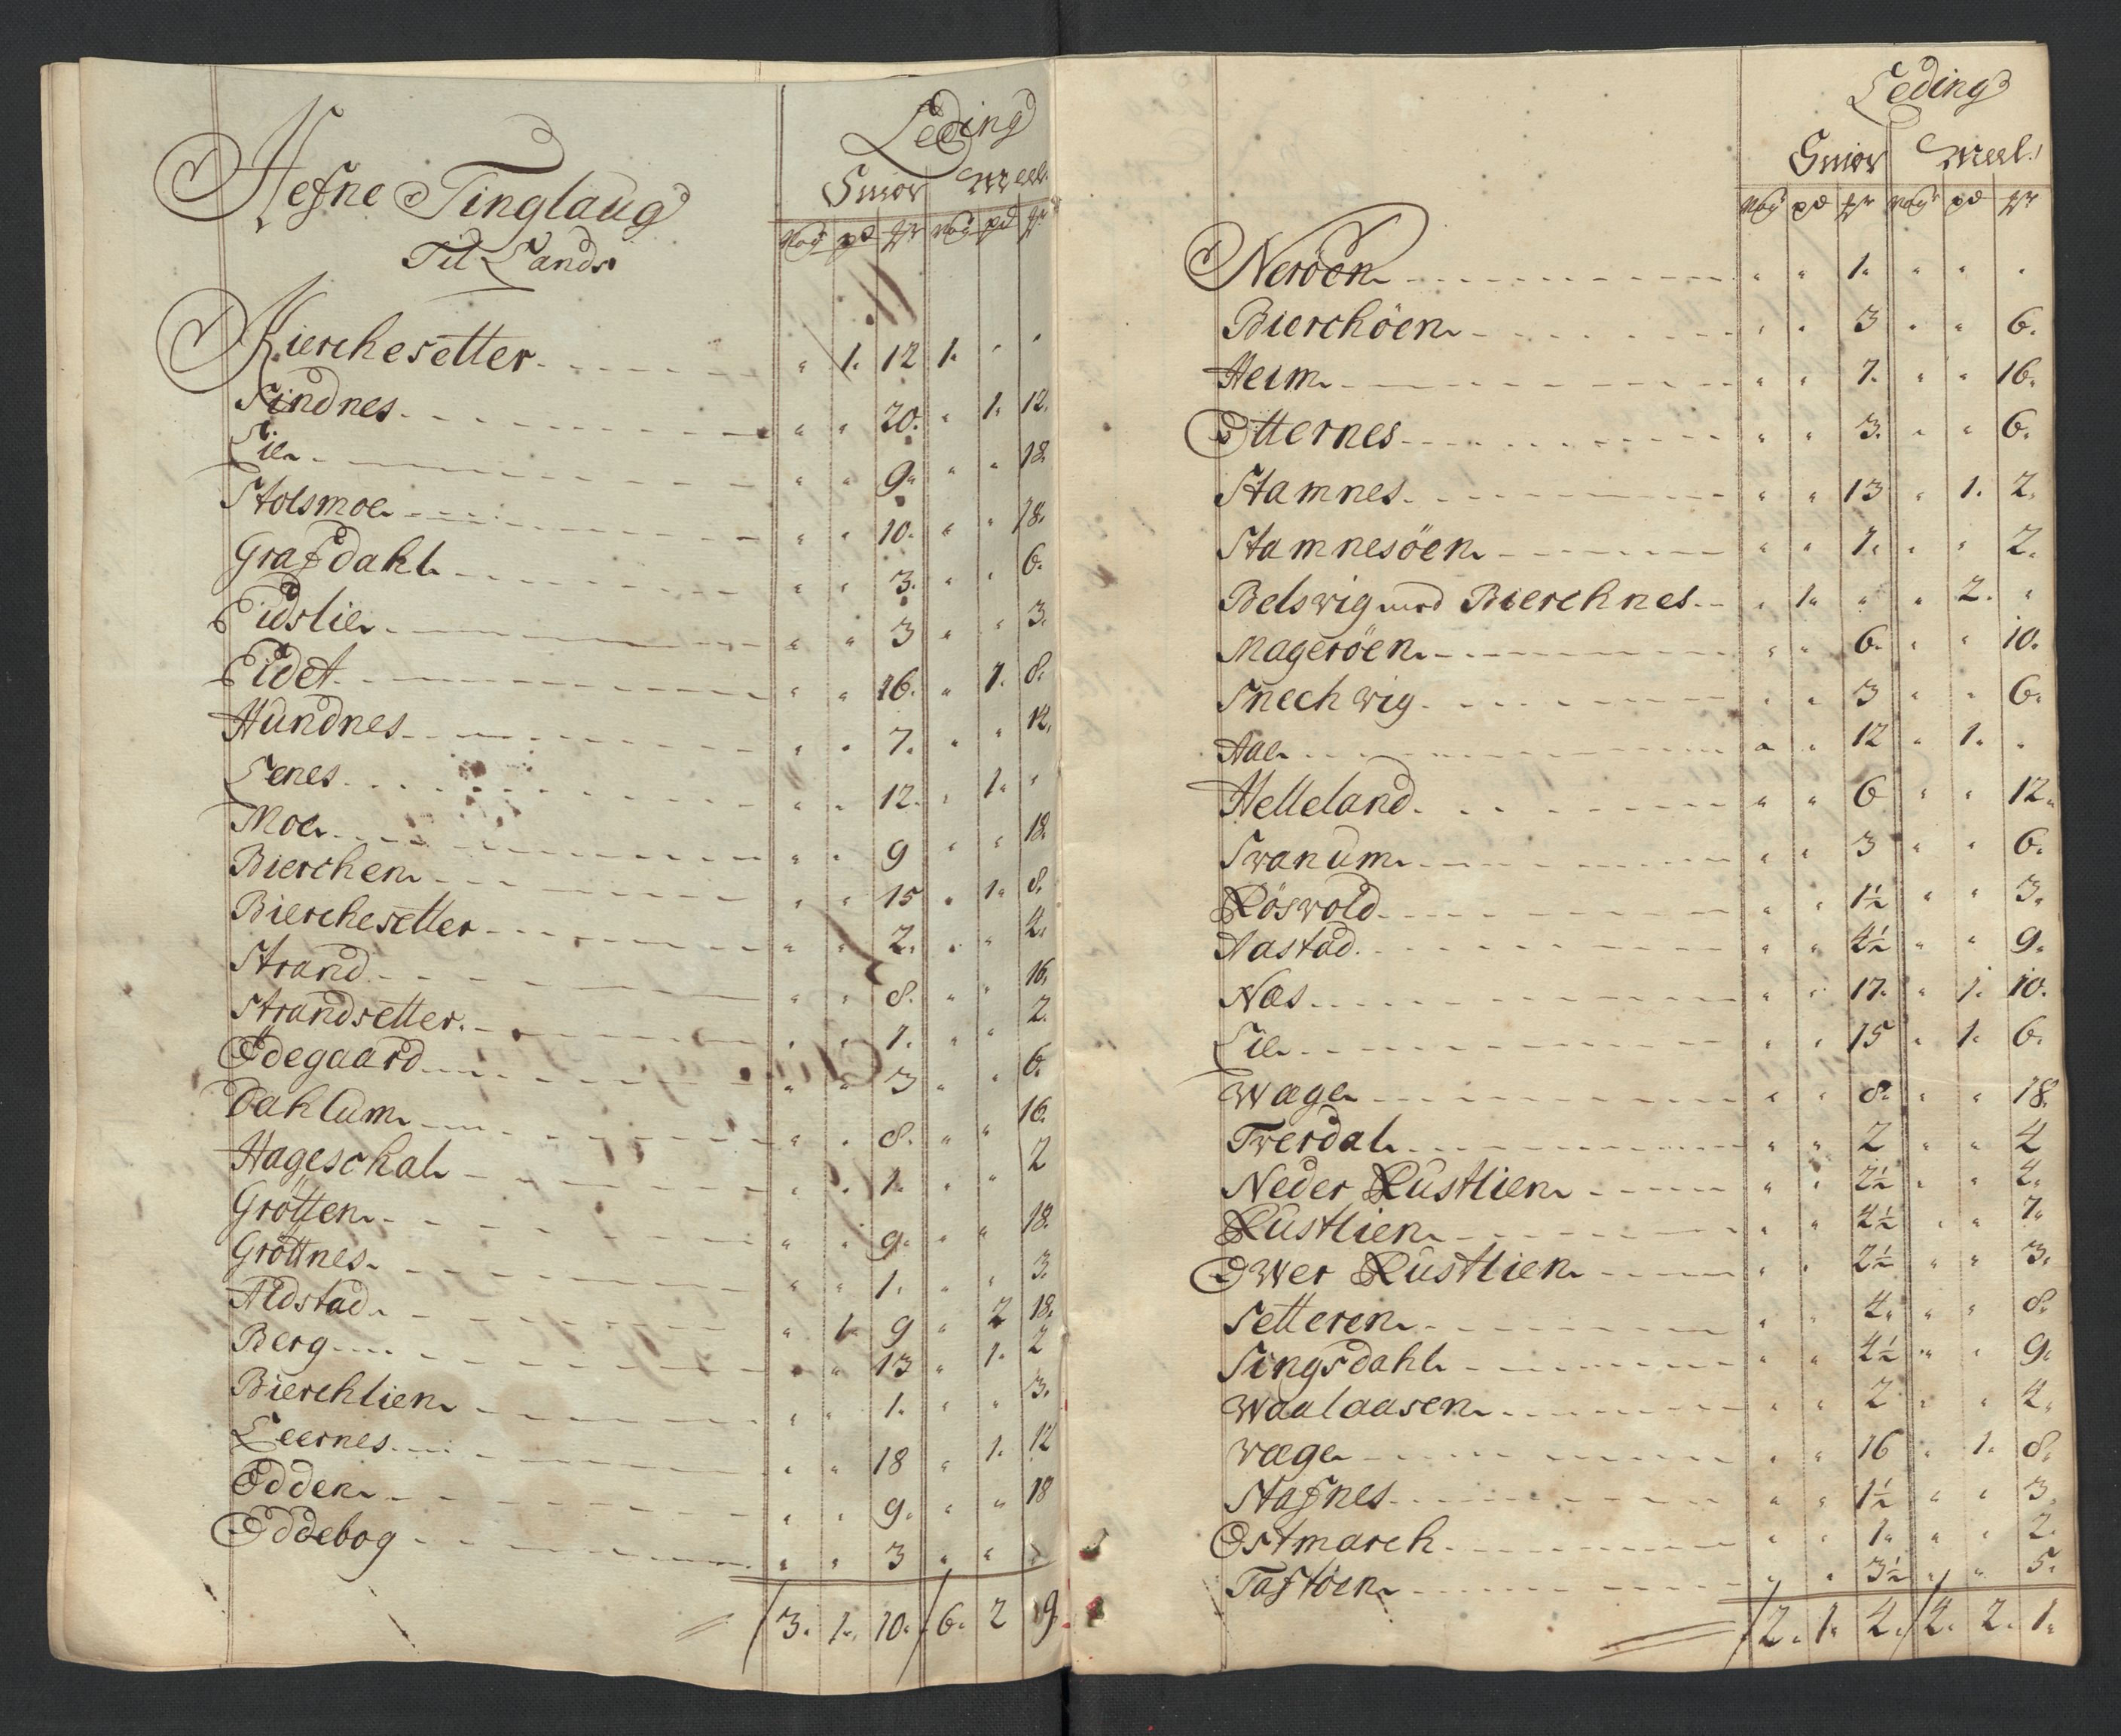 Leding
Hefne Tinglaug
Smør Meel
Til Lands
Vog pd Vog pd
Kierchesetter " 1. 12 1. " "
Sindnes " " 20. " 1. 12.
Lie " " 9 " " 18.
Stolsmoe " " 10. " " 18.
Grafdahl " " 3. " " 6.
Eidslie " " 3 " " 3.
Eidet " " 16. " 1. 8.
Hundnes " " 7. " " 12.
Lenes " " 12. " 1. "
Moe " " 9 " " 18.
Bierchen " " 15 " 1. 8.
Bierchesetter " " 2. " " 4.
Strand " " 8. " " 16.
Strandsetter " " 1. " " 2.
Ødegaard " " 3 " " 6.
Dahlum " " 8. " " 16.
Hageschal " " 1. " " 2
Grötten " " 9. " " 18.
Gröttnes " " 1. " " 3.
Aldstad " 1. 9 " 2 18.
Berg " " 13 " 1. 2
Bierchlien " " 1. " " 3.
Leernes " " 18 " 1. 12
Odden " " 9. " " 18
Oddebog " " 3 " "
3. 1. 10. 6. 2 9.
Leding
Smør Meel
Vog pd Vog pd
Neröen " " 1. " " "
Bierchöen " " 3 " " 6.
Heim " " 7. " " 16.
Otternes " " 3. " " 6.
Stamnes " " 13 " 1. 2.
Stamnesöen " " 1. " " 2.
Belsvig med Bierchnes " 1. " " 2. "
Mageröen " " 6. " " 10.
Snechvig " " 3 " " 6.
Aae " " 12 " 1. "
Helleland " " 6 " " 12.
Svanum " " 3 " " 6.
Rösvold " " 1½ " " 3.
Aastad " " 4½ " " 9.
Næs " " 17. " 1. 10.
Lie " " 15 " 1. 6.
Wage " " 8. " " 18.
Tverdal " " 2 " " 4
Neder Rustlien " " 2½ " " 4.
Rustlien " " 4½ " " 7.
Ower Rustlien " " 2½ " " 3.
Setteren " " 4. " " 8.
Singsdahl " " 4½ " " 9.
Waalaasen " " 2 " " 4.
Væge " " 16 " 1. 8.
Stafnes " " 1½ " " 3.
Ostmarch " " 1. " " 2.
Taftöen " " 3½ " " 5.
2. 1. 4. 4. 2. 1.